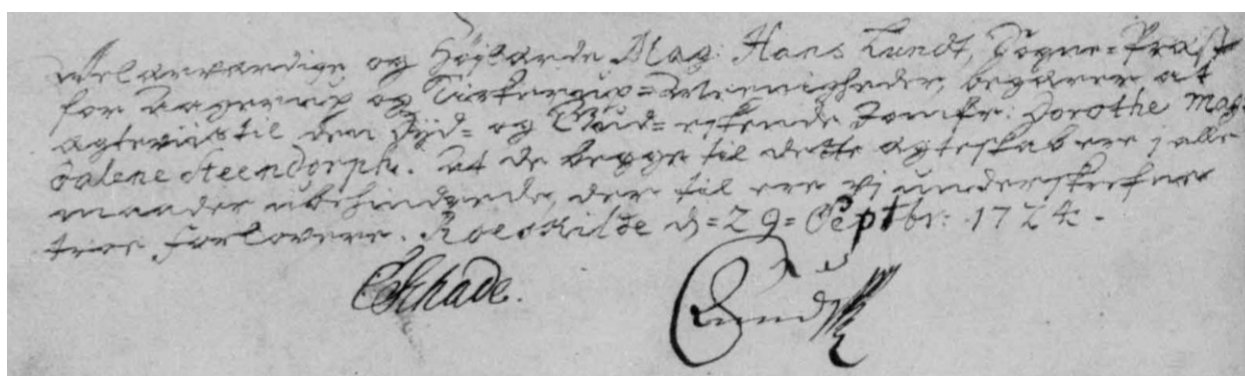 Welærværdige og Höjlærde Mag: Hans Lundt, Sogne=Præst
for Aagerup og Kirkerup=Meenigheder, begærer at
ægtevie til den Dyd= og Gud= elskende Jomfr: Dorothe Mag=
dalene Steendorph. At de begge til dette ægteskab ere j alle
maader ubehindrede, der til ere vj underskrefne
troe forlovere. Roeskilde d=29=Septbr: 1724.
CSchade. Lund